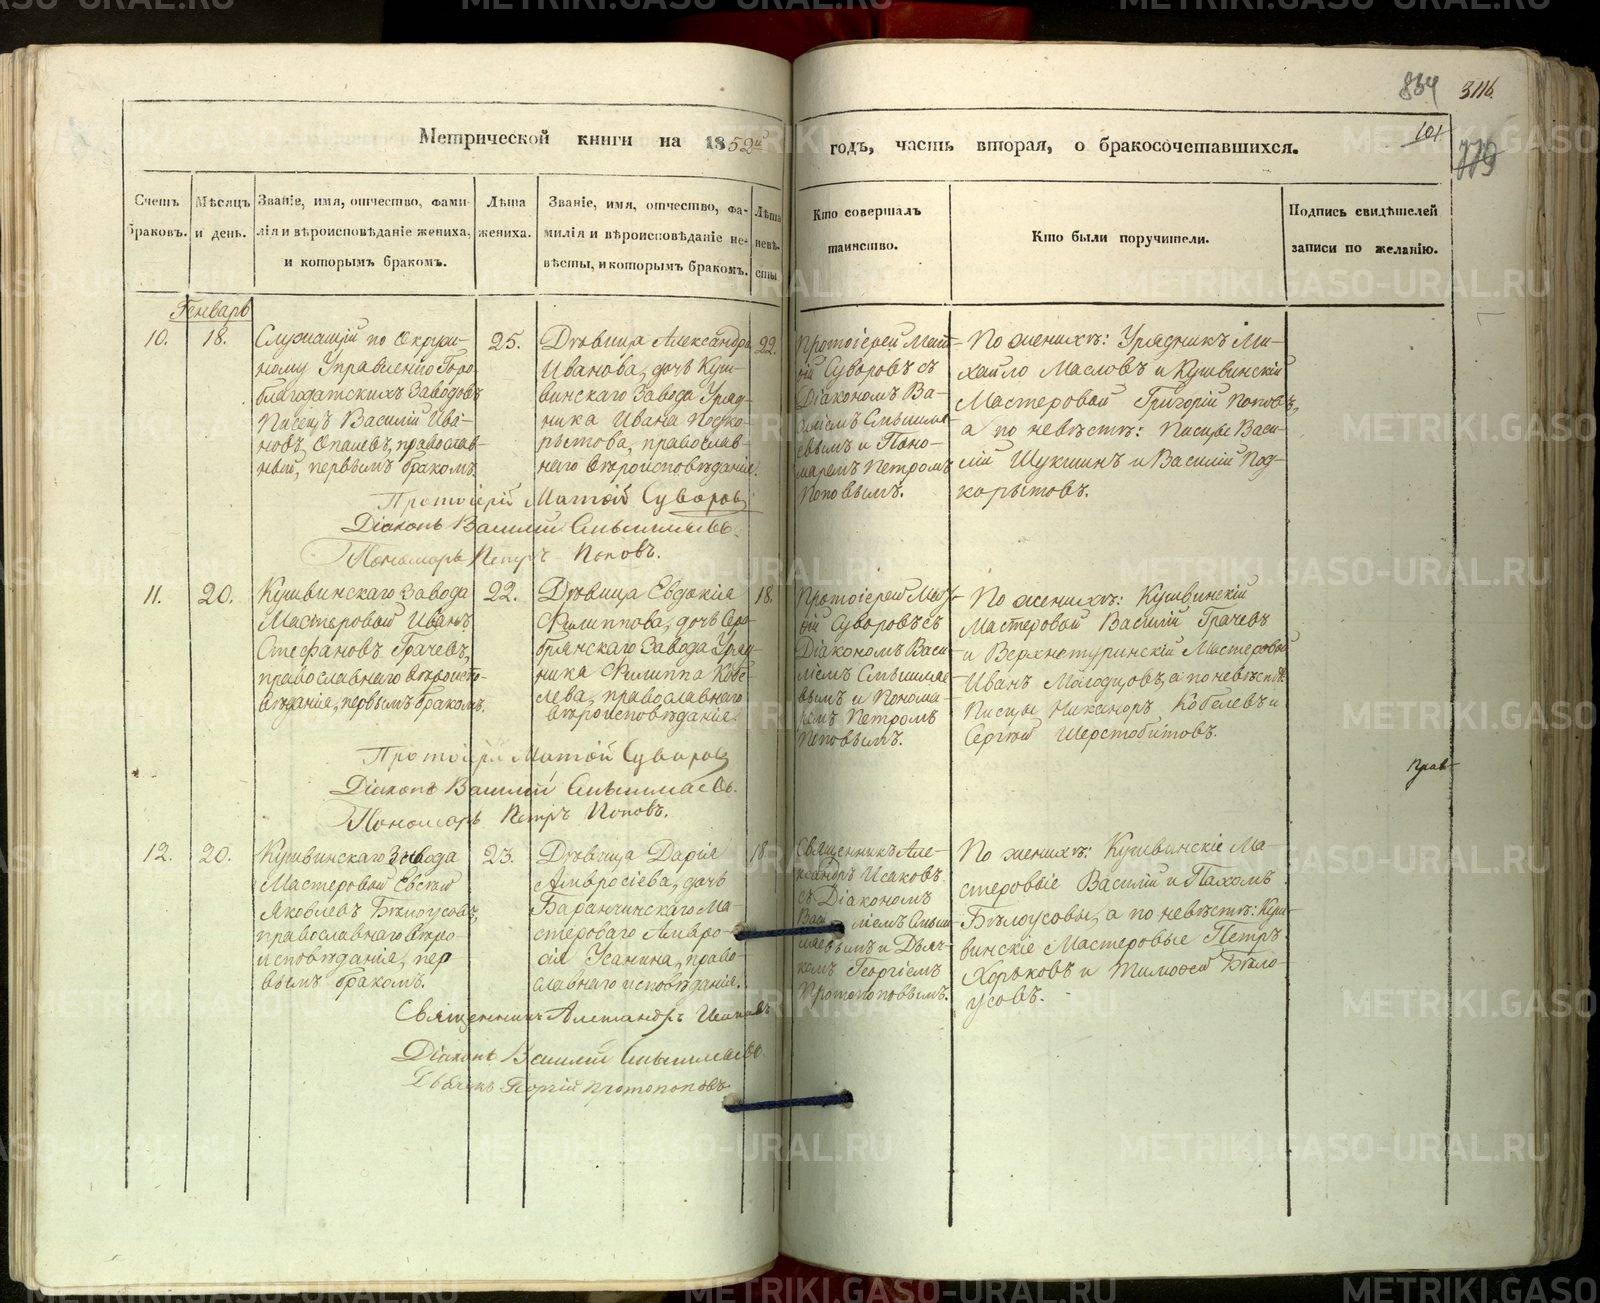 884 3116.
101
779
Метрической книги на 1852й годъ, часть вторая, о бракосочетавшихся.
Счетъ браковъ.
Мѣсяцъ и день.
Званіе, имя, отчество, фами-
лія и вѣроисповѣданіе жениха,
и которымъ бракомъ.
Лѣта
жениха.
Званіе, имя, отчество, фа-
милія и вѣроисповѣданіе не-
вѣсты, и которымъ бракомъ.
Лѣта
невѣ-
сты
Кто совершалъ
таинство.
Кто были поручители.
Подпись свидѣтелей
записи по желанію.
Генварь
10.
18.
Служащій по Окруж-
ному Управленію Горо-
благодатскихъ Заводовъ
Писецъ Василій Ива-
новъ Опалевъ, православ-
ный, первымъ бракомъ.
25.
Дѣвица Александра
Иванова, дочь Куш-
винскаго Завода Уряд-
ника Ивана Подко-
рытова, православ-
наго вѣроисповѣданія.
22.
Протоіерей Мат-
ѳій Суворовъ съ
Діакономъ Ва-
силіемъ Смышля-
евымъ и Поно-
маремъ Петромъ
Поповымъ.
По женихѣ: Урядникъ Ми-
хайло Масловъ и Кушвинскій
Мастеровой Григорій Поповъ,
а по невѣстѣ: Писцы Васи-
лій Шукшинъ и Василій Под-
корытовъ.
Протоіерей Матѳій Суворовъ
Діаконъ Василій Смышляевъ.
Пономарь Петръ Поповъ.
11.
20.
Кушвинскаго Завода
Мастеровой Иванъ
Стефановъ Грачевъ,
православнаго вѣроиспо-
вѣданія, первымъ бракомъ.
22.
Дѣвица Евдокія
Филиппова, дочь Сере-
брянскаго Завода Уряд-
ника Филиппа Кобе-
лева, православнаго
вѣроисповѣданія.
18.
Протоіерей Мат-
ѳій Суворовъ съ
Діакономъ Васи-
ліемъ Смышляе-
вымъ и Понома-
ремъ Петромъ
Поповымъ.
По женихѣ: Кушвинскій
Мастеровой Василій Грачевъ
и Верхнотуринскій Мастеровой
Иванъ а по невѣстѣ
Писцы Никаноръ Кобелевъ и
Сергѣй Шерстобитовъ.
Протоіерей Матѳій Суворовъ
Діаконъ Василій Смышляевъ.
Пономарь Петръ Поповъ.
12.
20.
Кушвинскаго Завода
Мастеровой Евсѣй
Яковлевъ Бѣлоусовъ,
православнаго вѣро-
исповѣданія, пер
вымъ бракомъ.
23.
Дѣвица Дарія
Амвросіева, дочь
Баранчинскаго Ма-
стероваго Амвро-
сія Усанина, право-
славнаго исповѣданія.
18.
Священникъ Але-
ксандръ Исаковъ
съ Діакономъ
Василіемъ Смыш-
ляевымъ и Дьяч-
комъ Георгіемъ
Протопоповымъ.
По женихѣ: Кушвинскіе Ма-
стеровые Василій и Пахомъ
Бѣлоусовы, а по невѣстѣ: Куш-
винскіе Мастеровые Петръ
Хорьковъ и Тимоѳей Бѣло-
усовъ.
Священникъ Александръ Исаковъ
Діаконъ Василій Смышляевъ
Дьячекъ Георгій Протопоповъ
METRIKI.GASO-URAL.RU